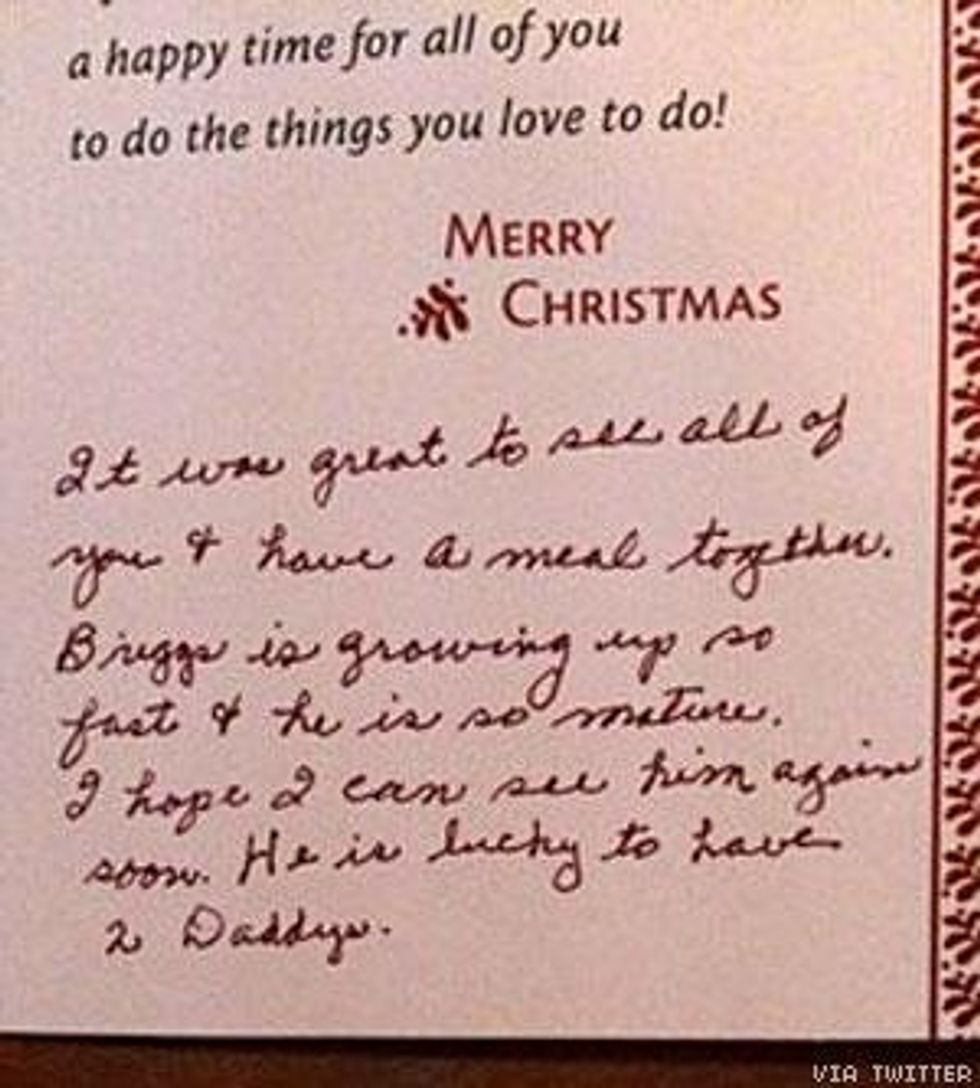 a happy time for all of you
to do the things you love to do!
MERRY
CHRISTMAS
It was great to see all of
you & have a meal together.
Briggs is growing up so
fast & he is so mature.
I hope I can see him again
soon. He is lucky to have
2 Daddys.
VIA TWITTER